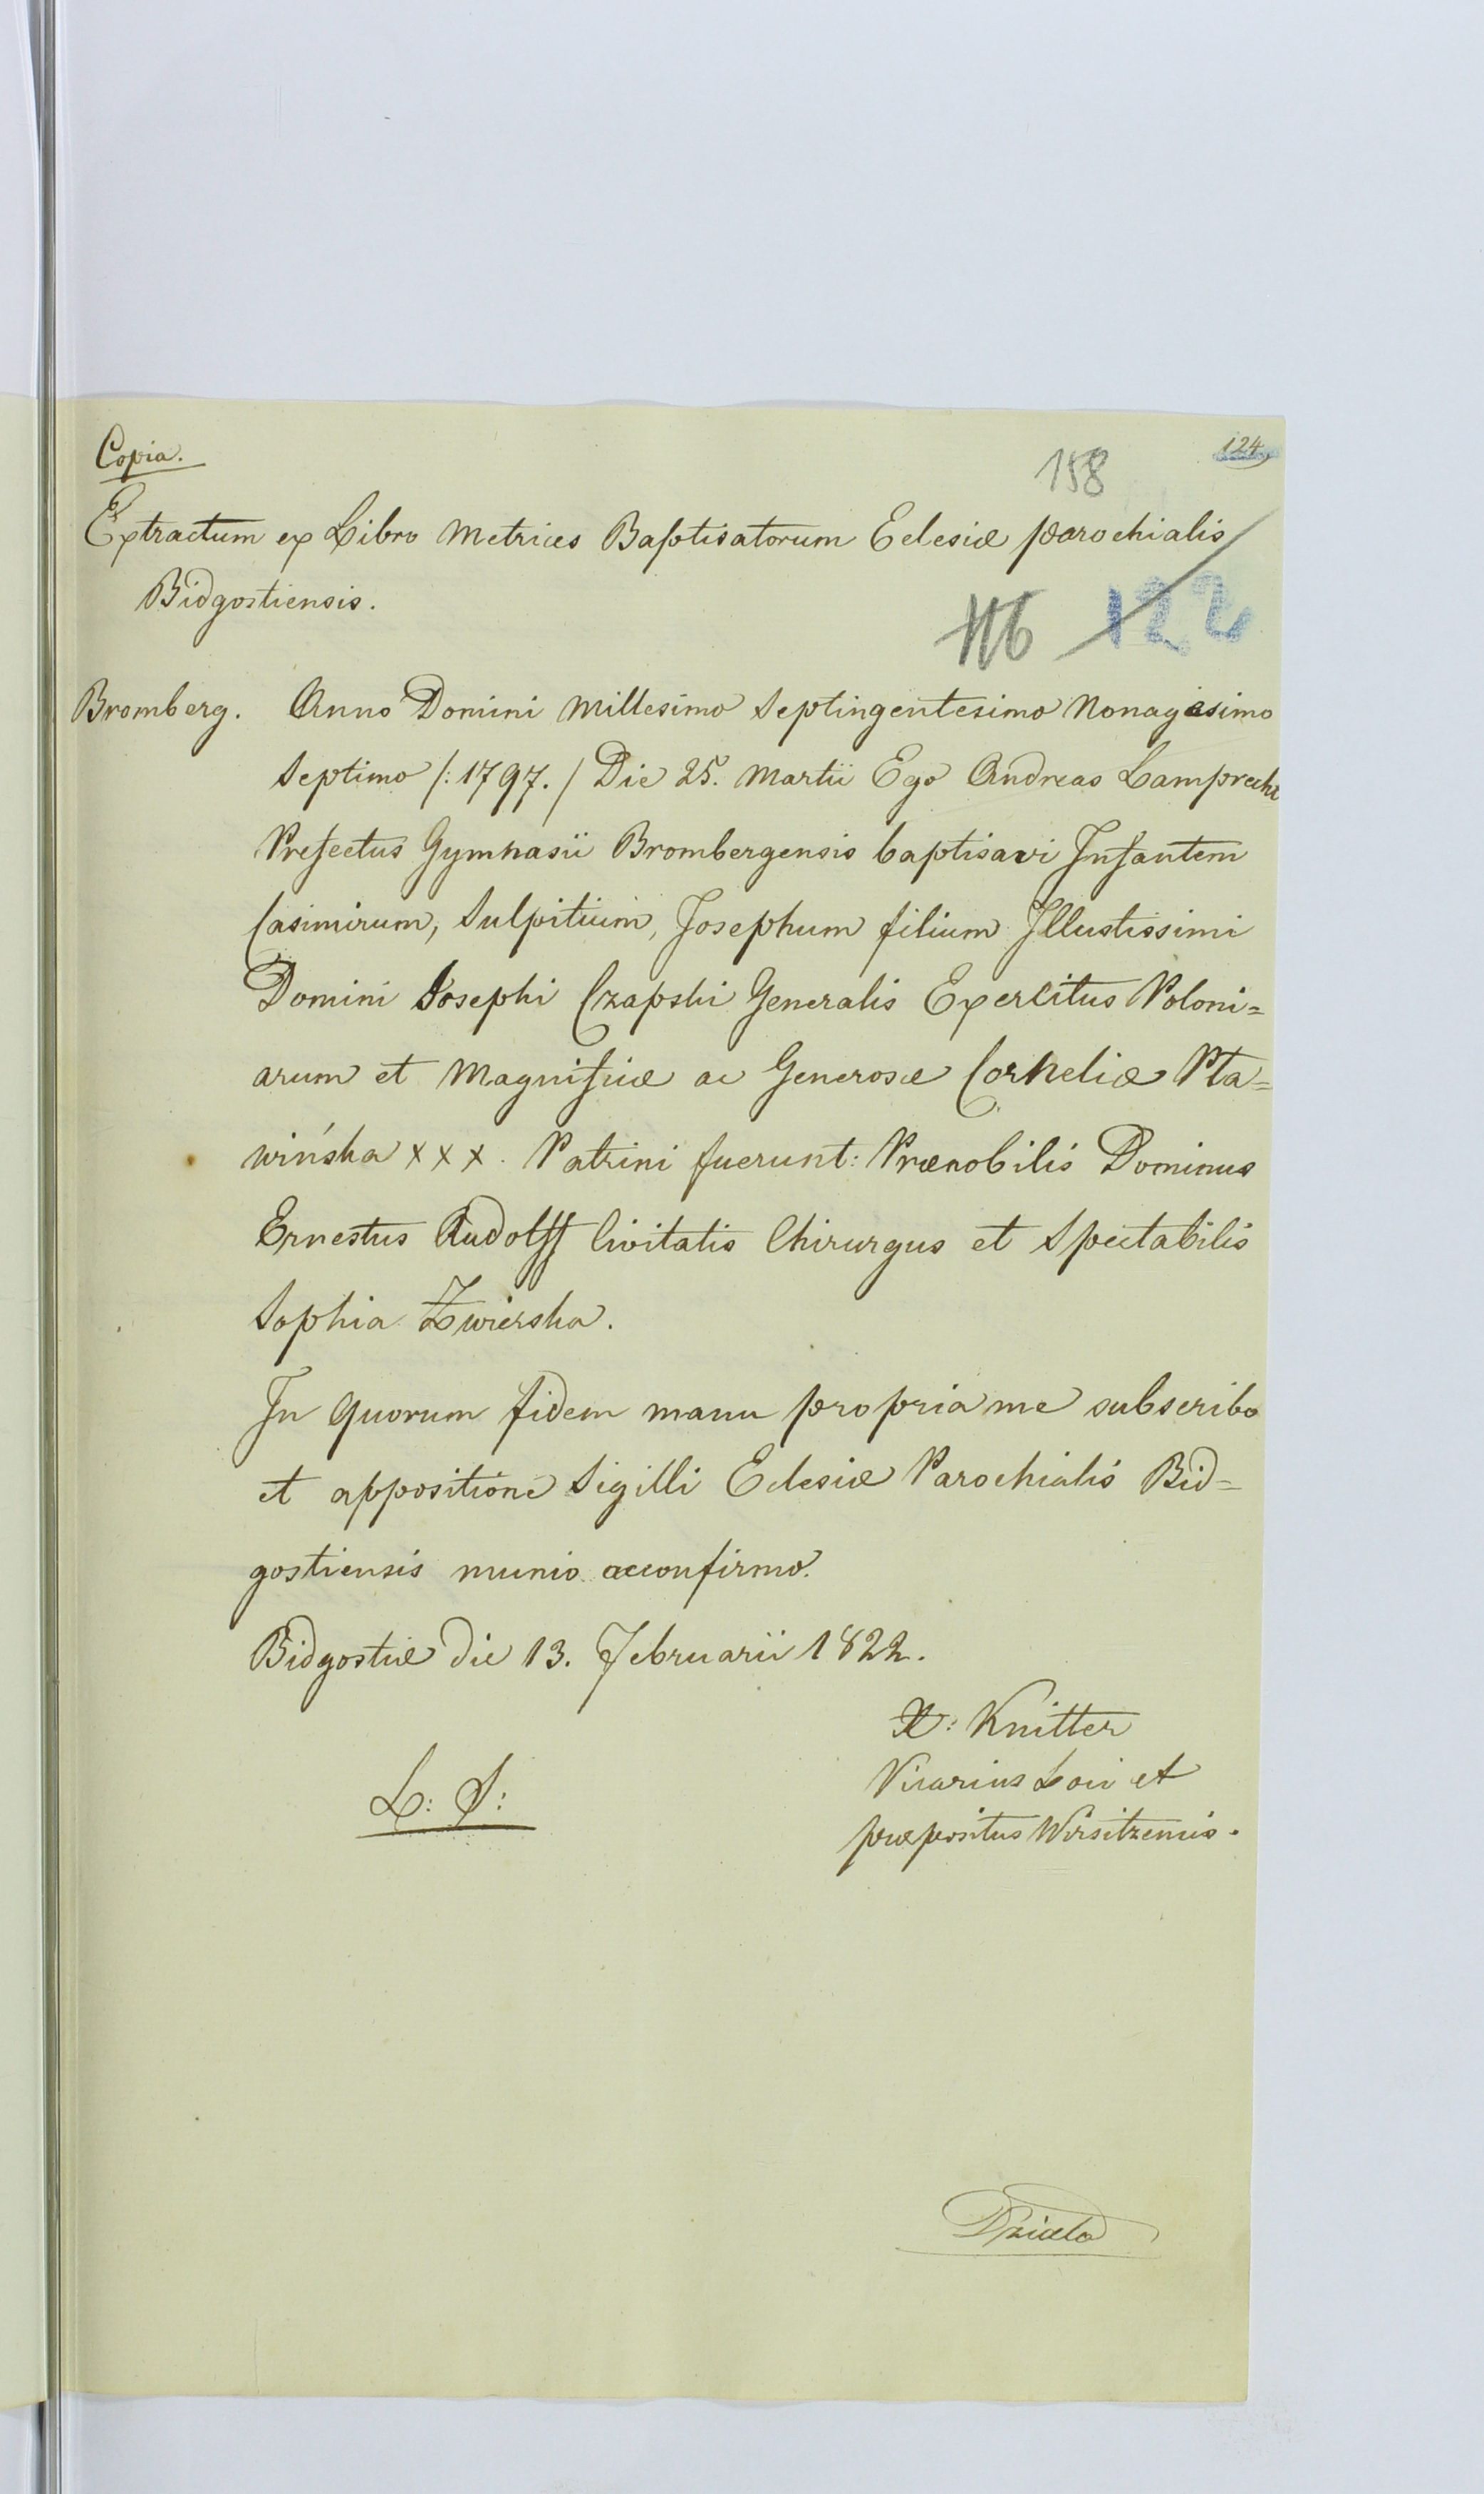 Copia.
124
158
Extractum ex Libro Metrices Baptisatorum Eclesiæ parochialis
Bidgostiensis.
116 122
Bromberg. Anno Domini Millesimo Septingentesimo Nonagesimo
Septimo /:1797./ Die 25. Martii Ego Andreas Lamprecht
Prefectus Gymnasii Brombergensis baptisavi Infantem
Casimirum, Sulpitium, Josephum filium Illustissimi
Domini Josephi Czapski Generalis Exercitus Poloni=
arum et Magnificæ ac Generosæ Corneliæ Pta=
wińska xxx. Patrini fuerunt: Prænobilis Dominus
Ernestus Rudolff Civitatis Chirurgus et Spectabilis
Sophia Zwierska.
In quorum fidem manu propria me subscribo
et appositione Sigilli Eclesiæ Parochialis Bid=
gostiensis munio acconfirmo.
Bidgostiæ die 13. Februarii 1822.
X: Knitter
Vicarius Loci et
præpositus Wirsitzensis.
L: S: